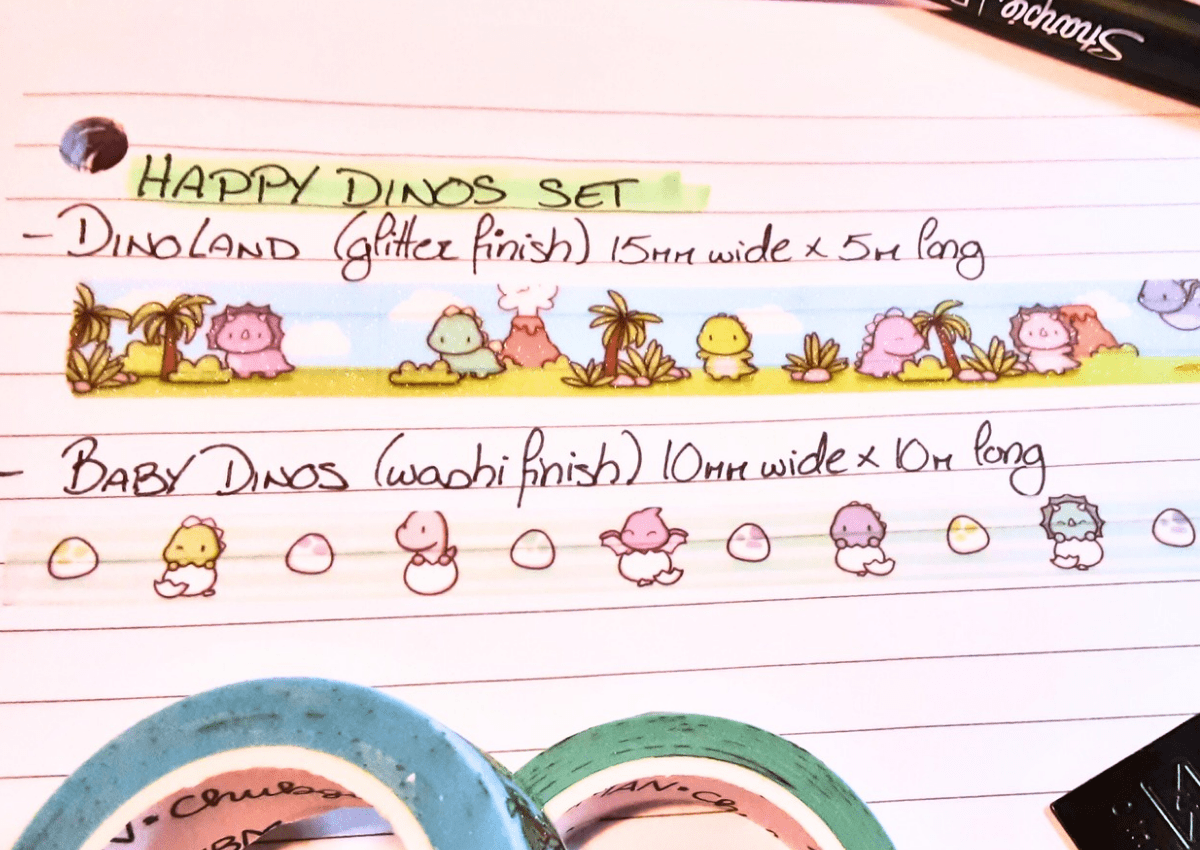 Sharpie
HAPPY DINOS SET
- DINOLAND (glitter finish) 15mm wide x 5m long
- BABY DINOS (washi finish) 10mm wide x 10m long